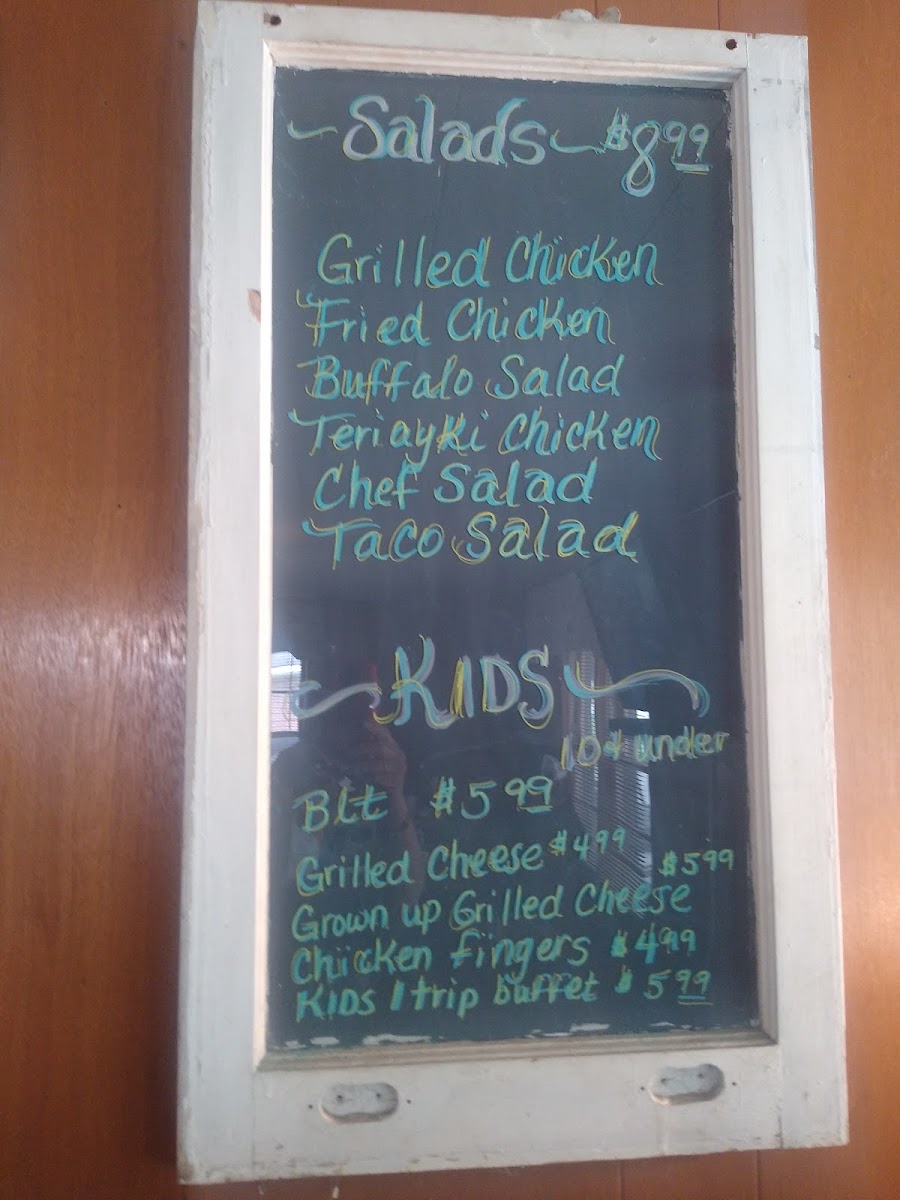 Salads $8.99
Grilled Chicken
Fried Chicken
Buffalo Salad
Teriayki Chicken
Chef Salad
Taco Salad
KIDS
10 & under
Blt $5 99
Grilled Cheese $4 99
$5 99
Grown up Grilled Cheese
Chicken fingers $4.99
KIDS 1 trip buffet $5 99